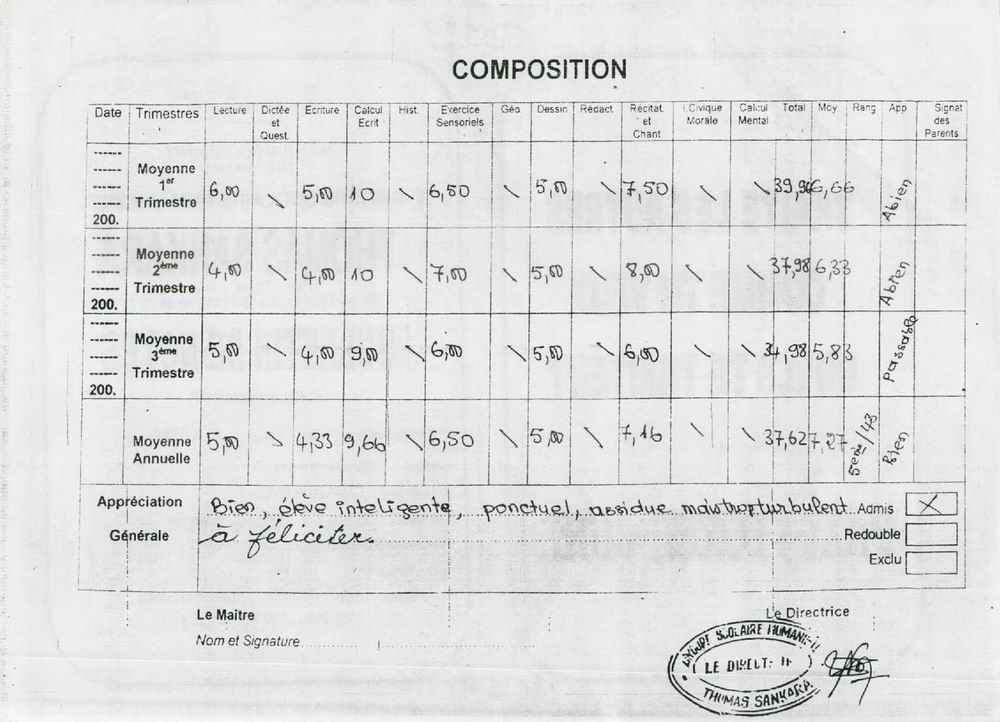 COMPOSITION
Date Trimestres Lecture Dictée et Quest. Ecriture Calcul Ecrit Hist. Exercice Sensoriels Géo. Dessin Rédact. Récitat. et Chant I.Civique Morale Calcul Mental Total Moy Rang App. Signat des Parents
200. Moyenne 1er Trimestre 6,00 \ 5,00 10 \ 6,50 \ 5,00 \ 7,50 \ \ 39,96 6,66 Abien
200. Moyenne 2ème Trimestre 4,00 \ 4,00 10 \ 7,00 \ 5,00 \ 8,00 \ \ 37,98 6,33 Abien
200. Moyenne 3ème Trimestre 5,00 \ 4,00 9,00 \ 6,00 \ 5,00 \ 6,00 \ \ 34,98 5,83 Passable
Moyenne Annuelle 5,00 \ 4,33 9,66 \ 6,50 \ 5,00 \ 7,16 \ \ 37,62 7,27 5eme/43 Bien
Appréciation Générale Bien, élève inteligente, ponctuel, assidue mais trop turbulent Admis X
à féliciter. Redouble
Exclu
Le Maitre Le Directrice
Nom et Signature
GROUPE SCOLAIRE
LE DIRECT
THOMAS SANKARA